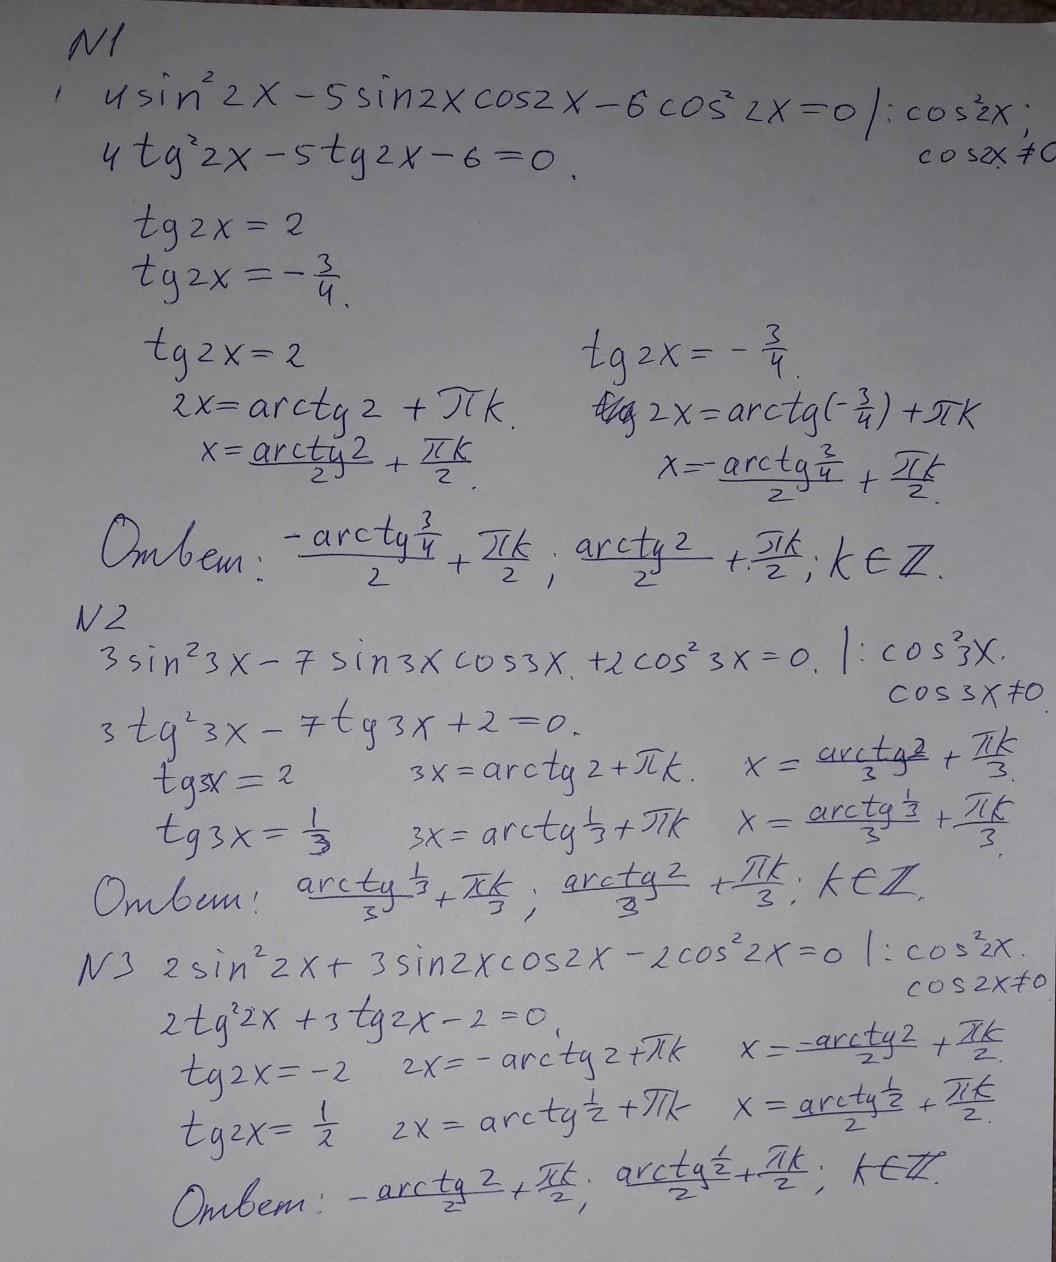 N1
4sin²2x – 5sin2xcos2x – 6cos²2x = 0 |: cos²2x;
cos2x ≠ 0
4tg²2x – 5tg2x – 6 = 0.
tg2x = 2
tg2x = – 3/4.
tg2x = 2 tg2x = – 3/4.
2x = arctg2 + πk. 2x = arctg(–3/4) + πk
x = arctg2/2 + πk/2. x = – arctg3/4 /2 + πk/2.
Ответ: – arctg3/4 /2 + πk/2; arctg2/2 + πk/2; k∈Z.
N2
3sin²3x – 7sin3xcos3x. + 2cos²3x = 0. |: cos²3x.
cos3x ≠ 0
3tg²3x – 7tg3x + 2 = 0.
tg3x = 2 3x = arctg2 + πk. x = arctg2/3 + πk/3.
tg3x = 1/3 3x = arctg1/3 + πk x = arctg1/3 /3 + πk/3.
Ответ: arctg1/3 /3 + πk/3; arctg2/3 + πk/3; k∈Z.
N3 2sin²2x + 3sin2xcos2x – 2cos²2x = 0 |: cos²2x.
cos2x ≠ 0
2tg²2x + 3tg2x – 2 = 0.
tg2x = –2 2x = – arctg2 + πk x = – arctg2/2 + πk/2.
tg2x = 1/2 2x = arctg1/2 + πk x = arctg1/2 /2 + πk/2.
Ответ: – arctg2/2 + πk/2; arctg1/2 /2 + πk/2; k∈Z.